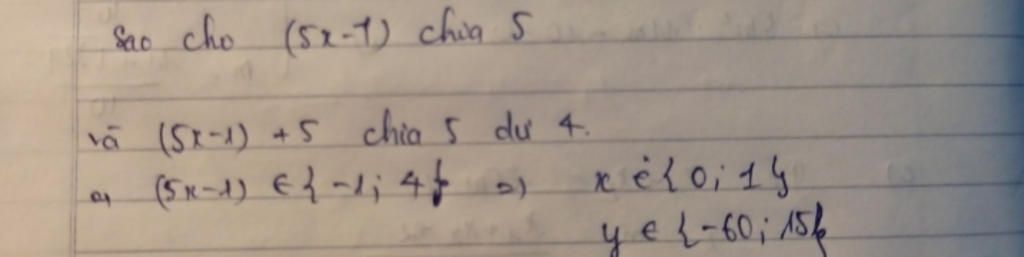 sao cho (5x-1) chia 5
và (5x-1) + 5 chia 5 dư 4.
(5x-1) ∈ { -1; 4 } => x ∈ { 0; 1 }
y ∈ { -60; 15 }